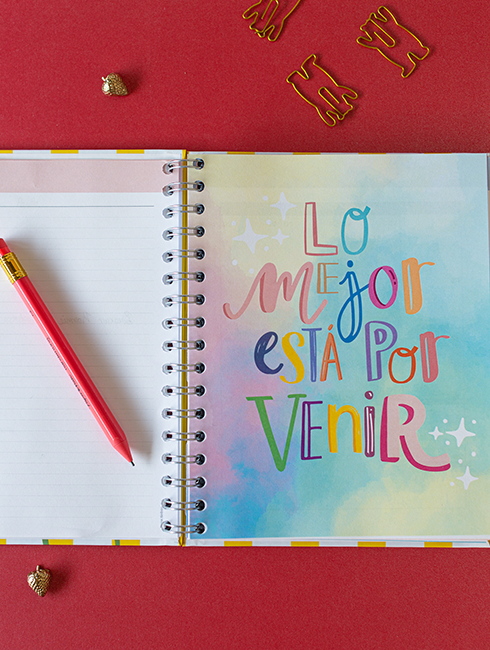 Lo
mejor
está por
venir